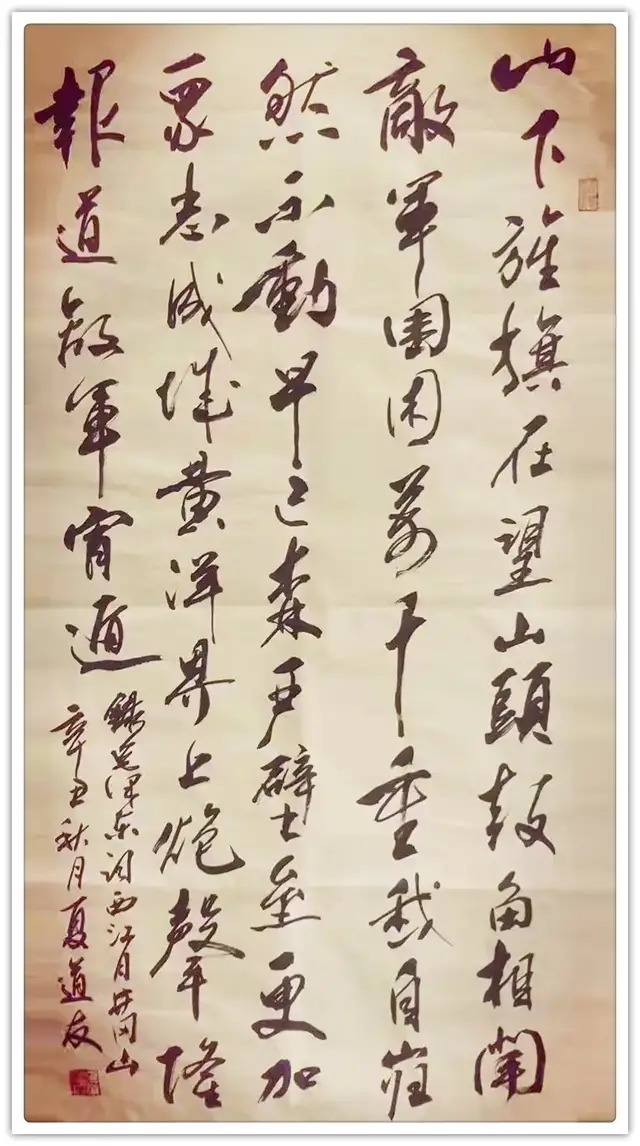 山下旌旗在望山頭鼓角相聞
敵軍圍困萬千重我自巋
然不動早已森严壁壘更加
衆志成城黄洋界上炮聲隆
報道敵軍宵遁
錄毛泽东词西江月井冈山
辛丑秋月夏道友